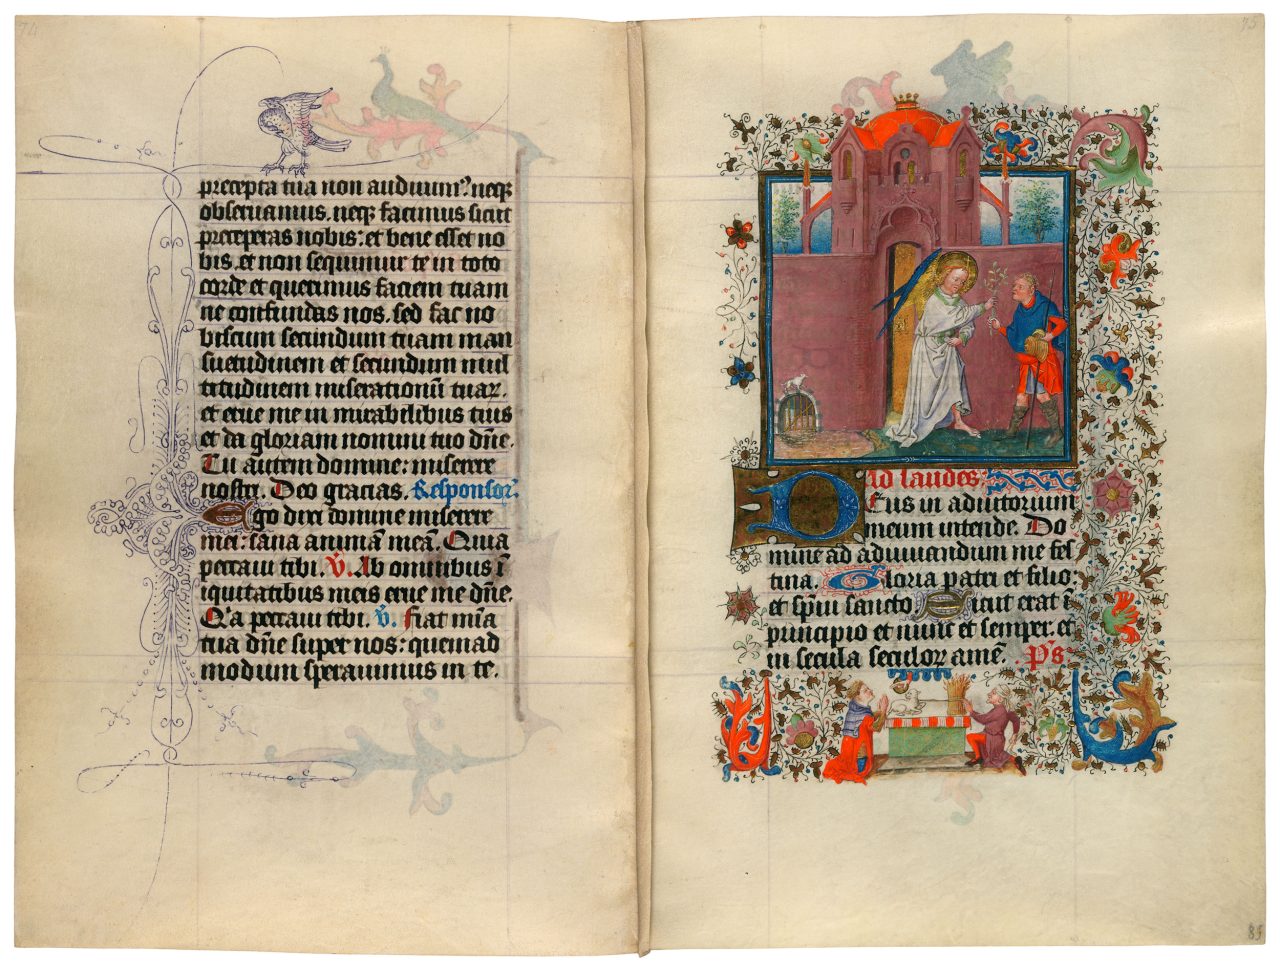 74
precepta tua non audiuim9. neq3
obseruauimus. neq3 facimus sicut
preceperas nobis: et bene esset no
bis. et non sequimur te in toto
corde et querimus faciem tuam
ne confundas nos. sed fac no
biscum secundum tuam man
suetudinem et secundum mul
titudinem miserationū tuar.
et erue me in mirabilibus tuis
et da gloriam nomini tuo dn̄e.
Tu autem domine: miserere
nostri. Deo gracias. Responsor.
Ego dixi domine miserere
mei: sana animā meā. Quia
peccaui tibi. v̄. Ab omnibus ī
iquitatibus meis erue me dn̄e.
Q'a peccaui tibi. v̄. Fiat mīa
tua dn̄e super nos: quemad
modum sperauimus in te.
75
Ad laudes:
Deus in adiutorium
meum intende. Do
mine ad adiuuandum me fes
tina. Gloria patri et filio:
et sp̄ui sancto Sicut erat ī
principio et nunc et semper. et
in secula seculor amē. Ps
85